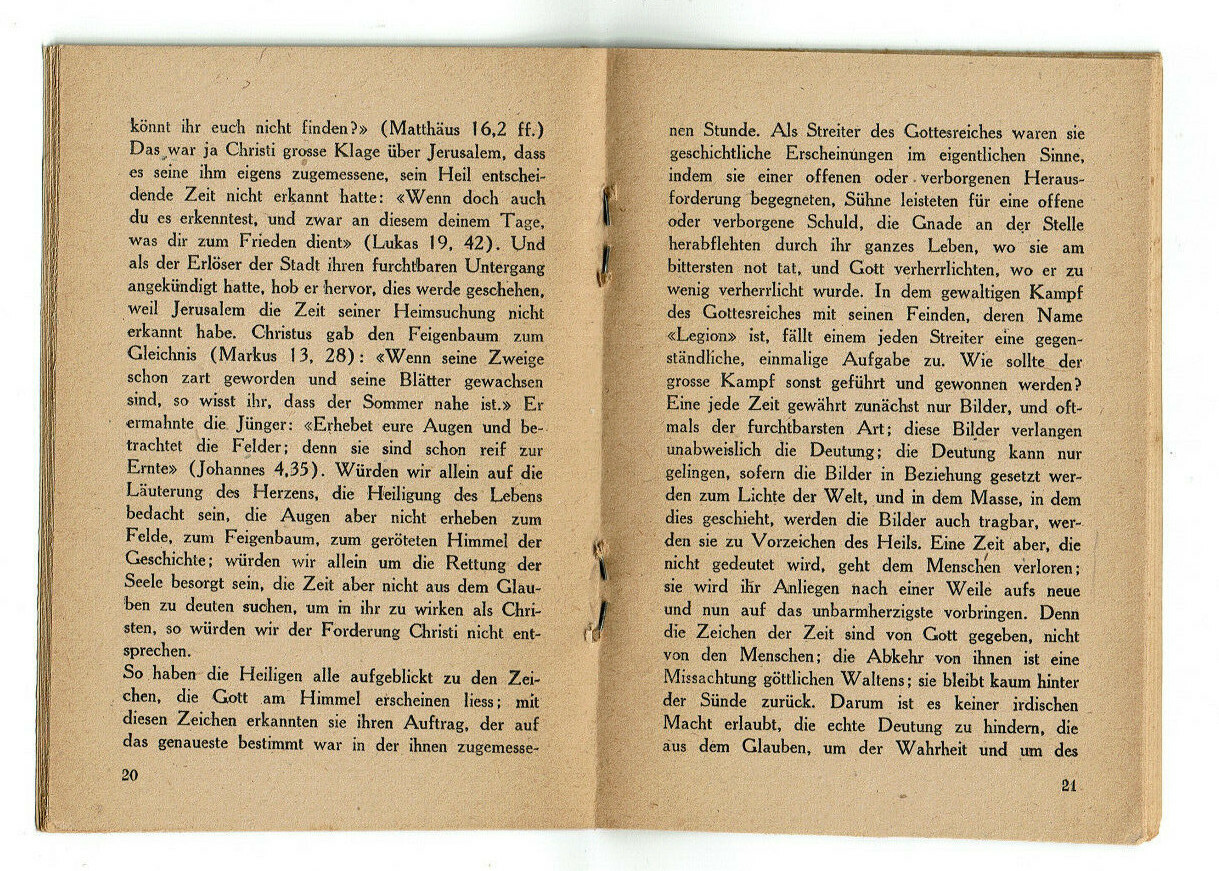 könnt ihr euch nicht finden?» (Matthäus 16,2 ff.)
Das war ja Christi grosse Klage über Jerusalem, dass
es seine ihm eigens zugemessene, sein Heil entschei-
dende Zeit nicht erkannt hatte: «Wenn doch auch
du es erkenntest, und zwar an diesem deinem Tage,
was dir zum Frieden dient» (Lukas 19, 42). Und
als der Erlöser der Stadt ihren furchtbaren Untergang
angekündigt hatte, hob er hervor, dies werde geschehen,
weil Jerusalem die Zeit seiner Heimsuchung nicht
erkannt habe. Christus gab den Feigenbaum zum
Gleichnis (Markus 13, 28): «Wenn seine Zweige
schon zart geworden und seine Blätter gewachsen
sind, so wisst ihr, dass der Sommer nahe ist.» Er
ermahnte die Jünger: «Erhebet eure Augen und be-
trachtet die Felder; denn sie sind schon reif zur
Ernte» (Johannes 4,35). Würden wir allein auf die
Läuterung des Herzens, die Heiligung des Lebens
bedacht sein, die Augen aber nicht erheben zum
Felde, zum Feigenbaum, zum geröteten Himmel der
Geschichte; würden wir allein um die Rettung der
Seele besorgt sein, die Zeit aber nicht aus dem Glau-
ben zu deuten suchen, um in ihr zu wirken als Chri-
sten, so würden wir der Forderung Christi nicht ent-
sprechen.
So haben die Heiligen alle aufgeblickt zu den Zei-
chen, die Gott am Himmel erscheinen liess; mit
diesen Zeichen erkannten sie ihren Auftrag, der auf
das genaueste bestimmt war in der ihnen zugemesse-
20
nen Stunde. Als Streiter des Gottesreiches waren sie
geschichtliche Erscheinungen im eigentlichen Sinne,
indem sie einer offenen oder verborgenen Heraus-
forderung begegneten, Sühne leisteten für eine offene
oder verborgene Schuld, die Gnade an der Stelle
herabflehten durch ihr ganzes Leben, wo sie am
bittersten not tat, und Gott verherrlichten, wo er zu
wenig verherrlicht wurde. In dem gewaltigen Kampf
des Gottesreiches mit seinen Feinden, deren Name
«Legion» ist, fällt einem jeden Streiter eine gegen-
ständliche, einmalige Aufgabe zu. Wie sollte der
grosse Kampf sonst geführt und gewonnen werden?
Eine jede Zeit gewährt zunächst nur Bilder, und oft-
mals der furchtbarsten Art; diese Bilder verlangen
unabweislich die Deutung; die Deutung kann nur
gelingen, sofern die Bilder in Beziehung gesetzt wer-
den zum Lichte der Welt, und in dem Masse, in dem
dies geschieht, werden die Bilder auch tragbar, wer-
den sie zu Vorzeichen des Heils. Eine Zeit aber, die
nicht gedeutet wird, geht dem Menschen verloren;
sie wird ihr Anliegen nach einer Weile aufs neue
und nun auf das unbarmherzigste vorbringen. Denn
die Zeichen der Zeit sind von Gott gegeben, nicht
von den Menschen; die Abkehr von ihnen ist eine
Missachtung göttlichen Waltens; sie bleibt kaum hinter
der Sünde zurück. Darum ist es keiner irdischen
Macht erlaubt, die echte Deutung zu hindern, die
aus dem Glauben, um der Wahrheit und um des
21